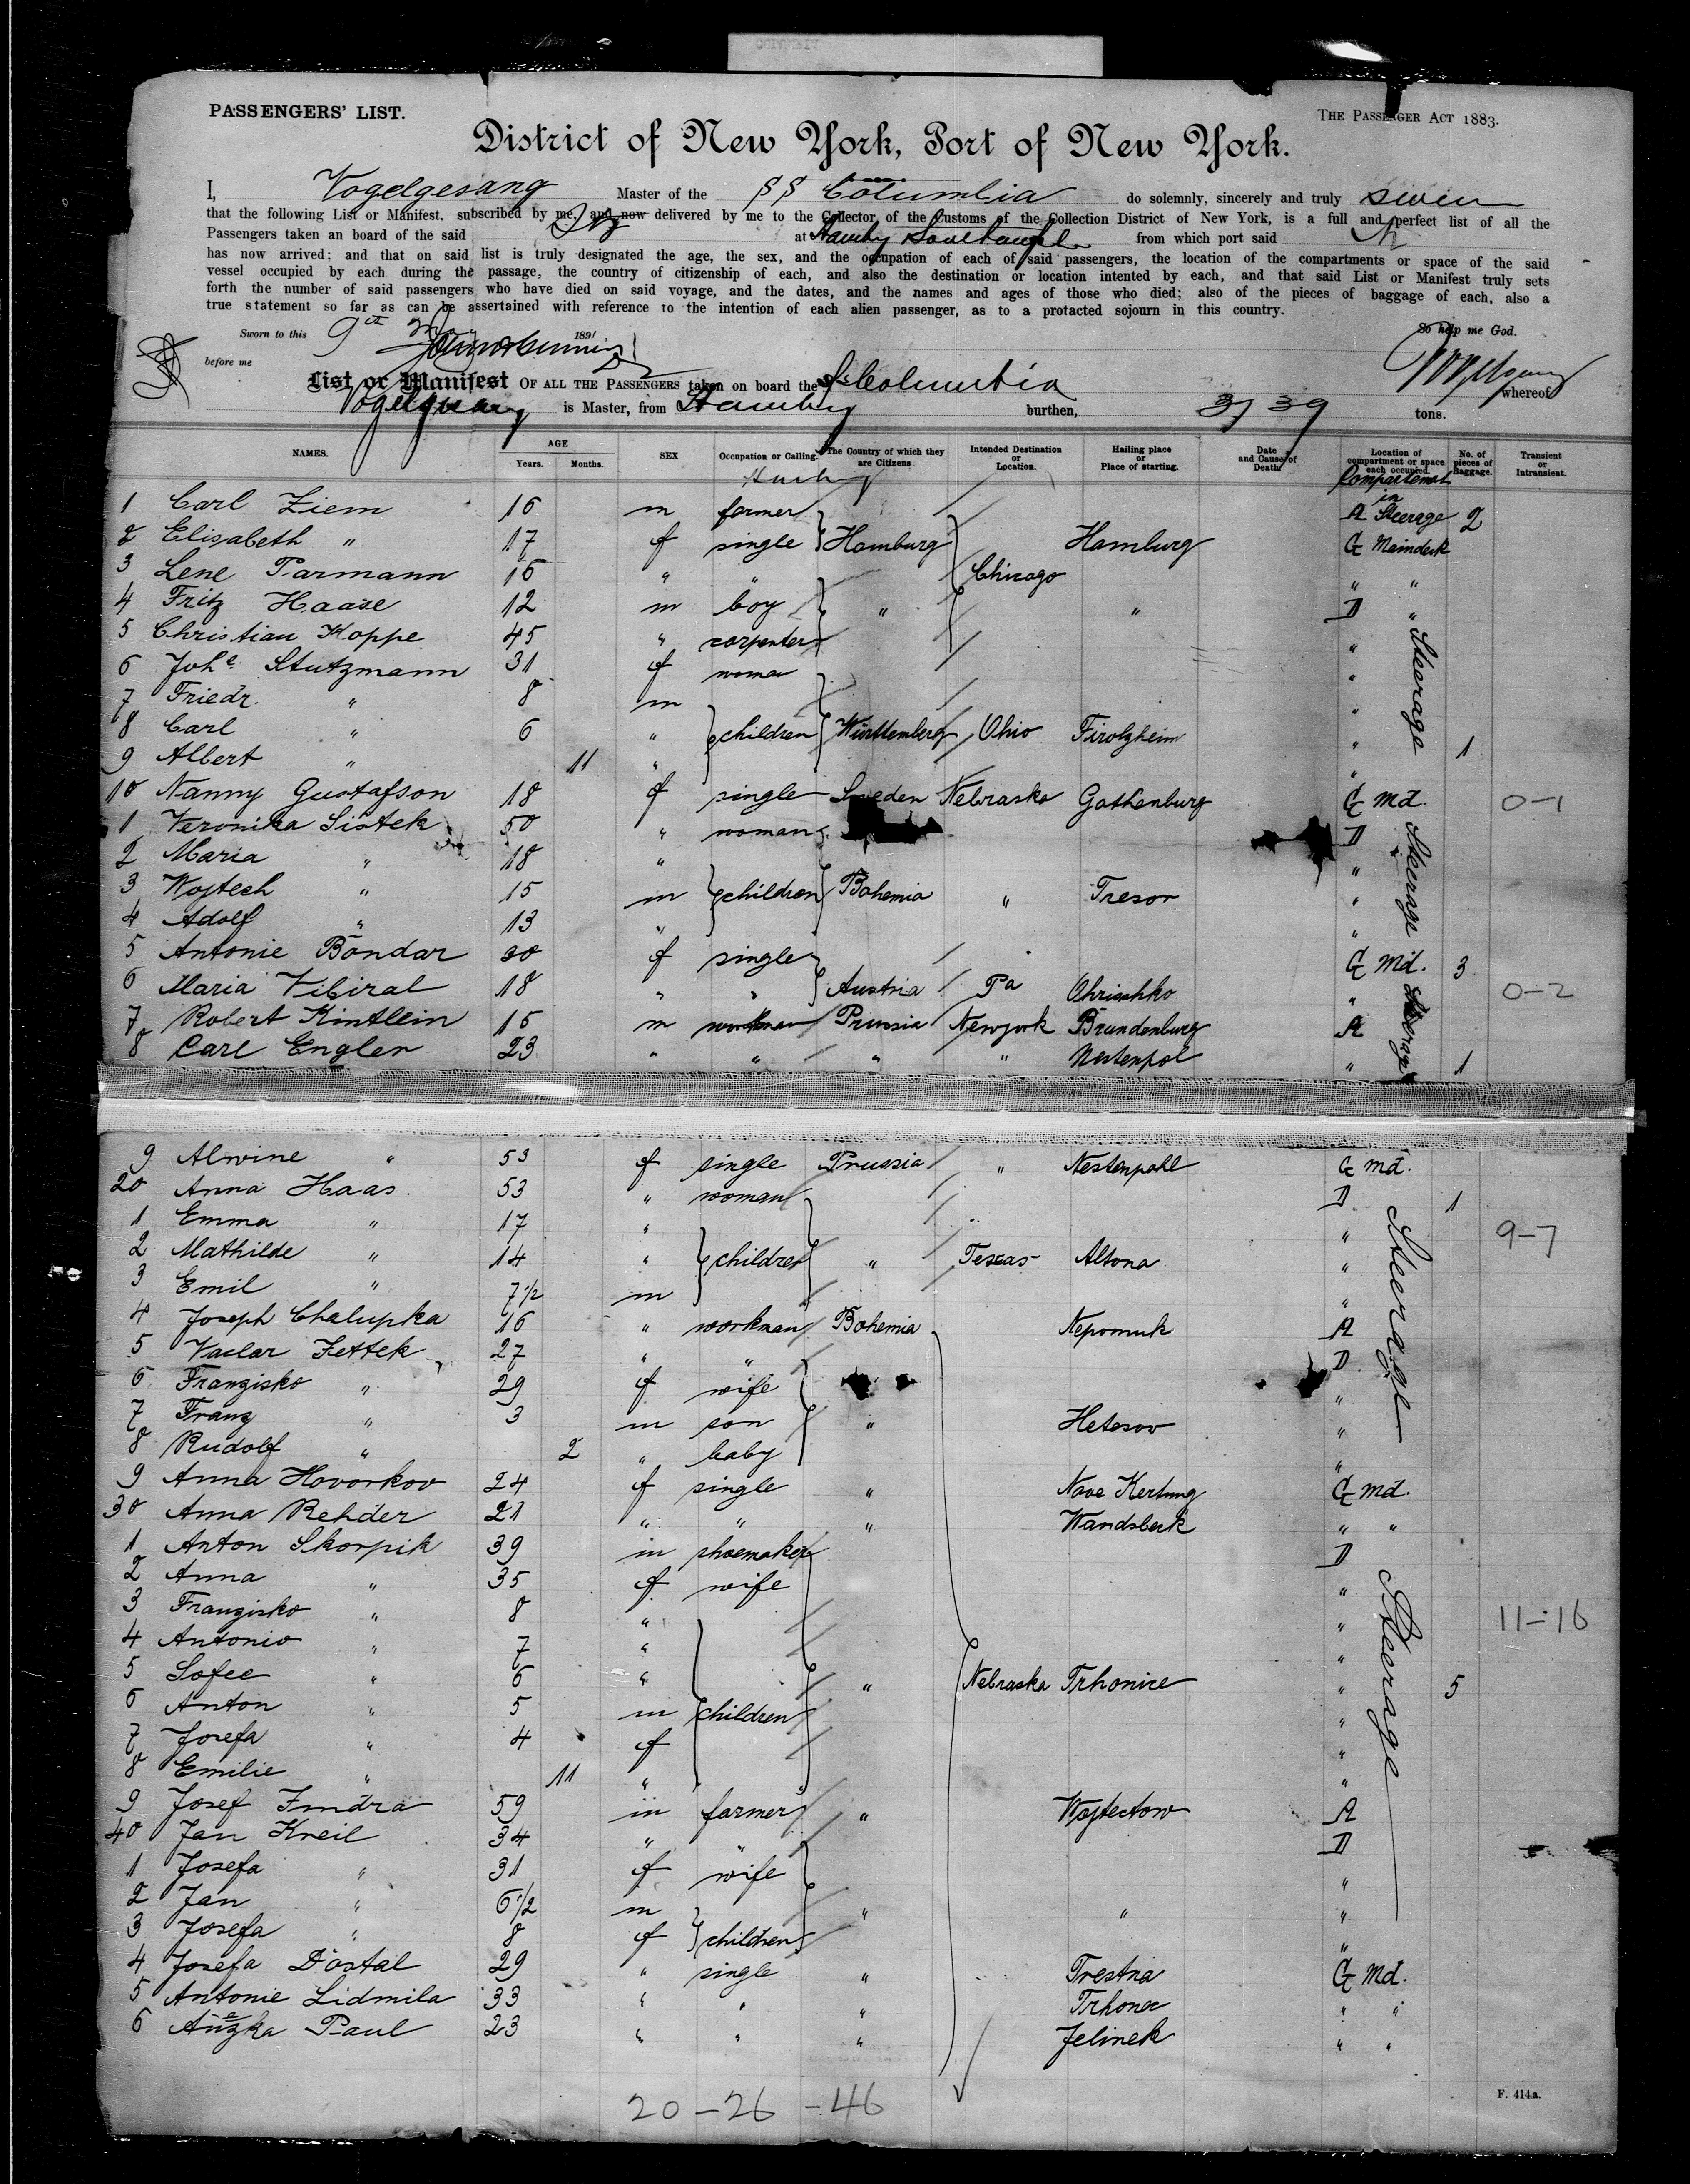 PASSENGERS' LIST.
THE PASSENGER ACT 1883.
District of New York, Port of New York.
I, Vogelgesang Master of the SS Columbia do solemnly, sincerely and truly swear
that the following List or Manifest, subscribed by me, and now delivered by me to the Collector of the Customs of the Collection District of New York, is a full and perfect list of all the
Passengers taken an board of the said at Hamburg from which port said
has now arrived; and that on said list is truly designated the age, the sex, and the occupation of each of said passengers, the location of the compartments or space of the said
vessel occupied by each during the passage, the country of citizenship of each, and also the destination or location intented by each, and that said List or Manifest truly sets
forth the number of said passengers who have died on said voyage, and the dates, and the names and ages of those who died; also of the pieces of baggage of each, also a
true statement so far as can be assertained with reference to the intention of each alien passenger, as to a protacted sojourn in this country.
Sworn to this 9th 1891 So help me God.
before me
List or Manifest OF ALL THE PASSENGERS taken on board the SS Columbia whereof
Vogelgesang is Master, from Hamburg burthen, 3739 tons.
NAMES. AGE Years. Months. SEX Occupation or Calling. The Country of which they are Citizens Intended Destination or Location. Hailing place or Place of starting. Date and Cause of Death Location of compartment or space each occupied. No. of pieces of Baggage. Transient or Intransient.
Compartment in
1 Carl Ziem 16 m farmer A Steerage 2
2 Elisabeth " 17 f single Hamburg Hamburg G Maindeck
3 Lene Parmann 16 " " Chicago " "
4 Fritz Haase 12 m boy " " D "
5 Christian Koppe 45 " carpenter " Steerage
6 Johe Stutzmann 31 f woman "
7 Friedr. " 8 m "
8 Carl " 6 " children Württemberg Ohio Firolzheim "
9 Albert " 11 " " 1
10 Nanny Gustafson 18 f single Sweden Nebraska Gothenburg G Md. 0-1
1 Veronika Sistek 50 " woman D
2 Maria " 18 " " Steerage
3 Wojtech " 15 m children Bohemia " Tresor "
4 Adolf " 13 " "
5 Antonie Bondar 20 f single G Md. 3
6 Maria Vibiral 18 " " Austria Pa Ohrischko " 0-2
7 Robert Kintlein 15 m workman Prussia Newyork Brandenburg A Steerage
8 Carl Engler 23 " " " " Nestenpol " 1
9 Alwine " 53 f single Prussia " Nestenpohl G Md.
20 Anna Haas 53 " woman D 1
1 Emma " 17 " " 9-7
2 Mathilde " 14 " children " Texas Altona " Steerage
3 Emil " 7 1/2 m "
4 Joseph Chalupka 16 " workman Bohemia Nepomuk A
5 Vaclav Zettek 27 " " D
6 Franzisko " 29 f wife "
7 Franz " 3 m son " Hetesov "
8 Rudolf " 2 " baby "
9 Anna Hovorkov 24 f single " G Md.
30 Anna Rehder 21 " " " Wandsbeck " "
1 Anton Skorpik 39 m shoemaker D
2 Anna " 35 f wife "
3 Franzisko " 8 " " 11-16
4 Antonio " 7 " " Steerage
5 Sofee " 6 " " Nebraska Trhonice " 5
6 Anton " 5 m children "
7 Josefa " 4 f "
8 Emilie " 11 " "
9 Josef Jindra 59 m farmer " Wojtectow A
40 Jan Kreil 34 " " D
1 Josefa " 31 f wife "
2 Jan " 6 1/2 m " " "
3 Josefa " 8 f children "
4 Josefa Dostal 29 " single " Trestna G Md.
5 Antonie Lidmila 33 " " " Trhonec " "
6 Paul 23 " " " Jelinek " "
20-26-46
F. 414a.